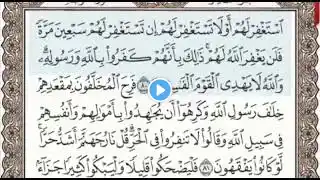 ٱسۡتَغۡفِرۡ لَهُمۡ أَوۡ لَا تَسۡتَغۡفِرۡ لَهُمۡ إِن تَسۡتَغۡفِرۡ لَهُمۡ سَبۡعِينَ مَرَّةٗ
فَلَن يَغۡفِرَ ٱللَّهُ لَهُمۡۚ ذَٰلِكَ بِأَنَّهُمۡ كَفَرُواْ بِٱللَّهِ وَرَسُولِهِۦۗ
وَٱللَّهُ لَا يَهۡدِي ٱلۡقَوۡمَ ٱلۡفَٰسِقِينَ ٨٠ فَرِحَ ٱلۡمُخَلَّفُونَ بِمَقۡعَدِهِمۡ
خِلَٰفَ رَسُولِ ٱللَّهِ وَكَرِهُوٓاْ أَن يُجَٰهِدُواْ بِأَمۡوَٰلِهِمۡ وَأَنفُسِهِمۡ
فِي سَبِيلِ ٱللَّهِ وَقَالُواْ لَا تَنفِرُواْ فِي ٱلۡحَرِّۗ قُلۡ نَارُ جَهَنَّمَ أَشَدُّ حَرّٗاۚ
لَّوۡ كَانُواْ يَفۡقَهُونَ ٨١ فَلۡيَضۡحَكُواْ قَلِيلٗا وَلۡيَبۡكُواْ كَثِيرٗا جَزَآءَۢ